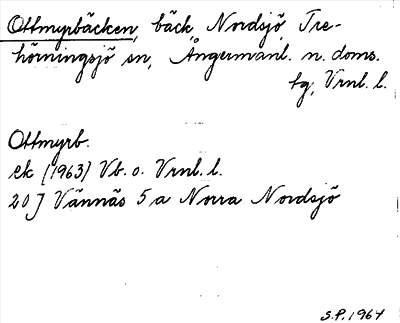 Ottmyrbäcken, bäck, Nordsjö, Tre-
hörningsjö sn, Ångermanl. n. doms.
tg, Vrnl. l.
Ottmyrb.
ek (1963) Vb. o. Vrnl. l.
20 J Vännäs 5 a Norra Nordsjö
S.P. 1964